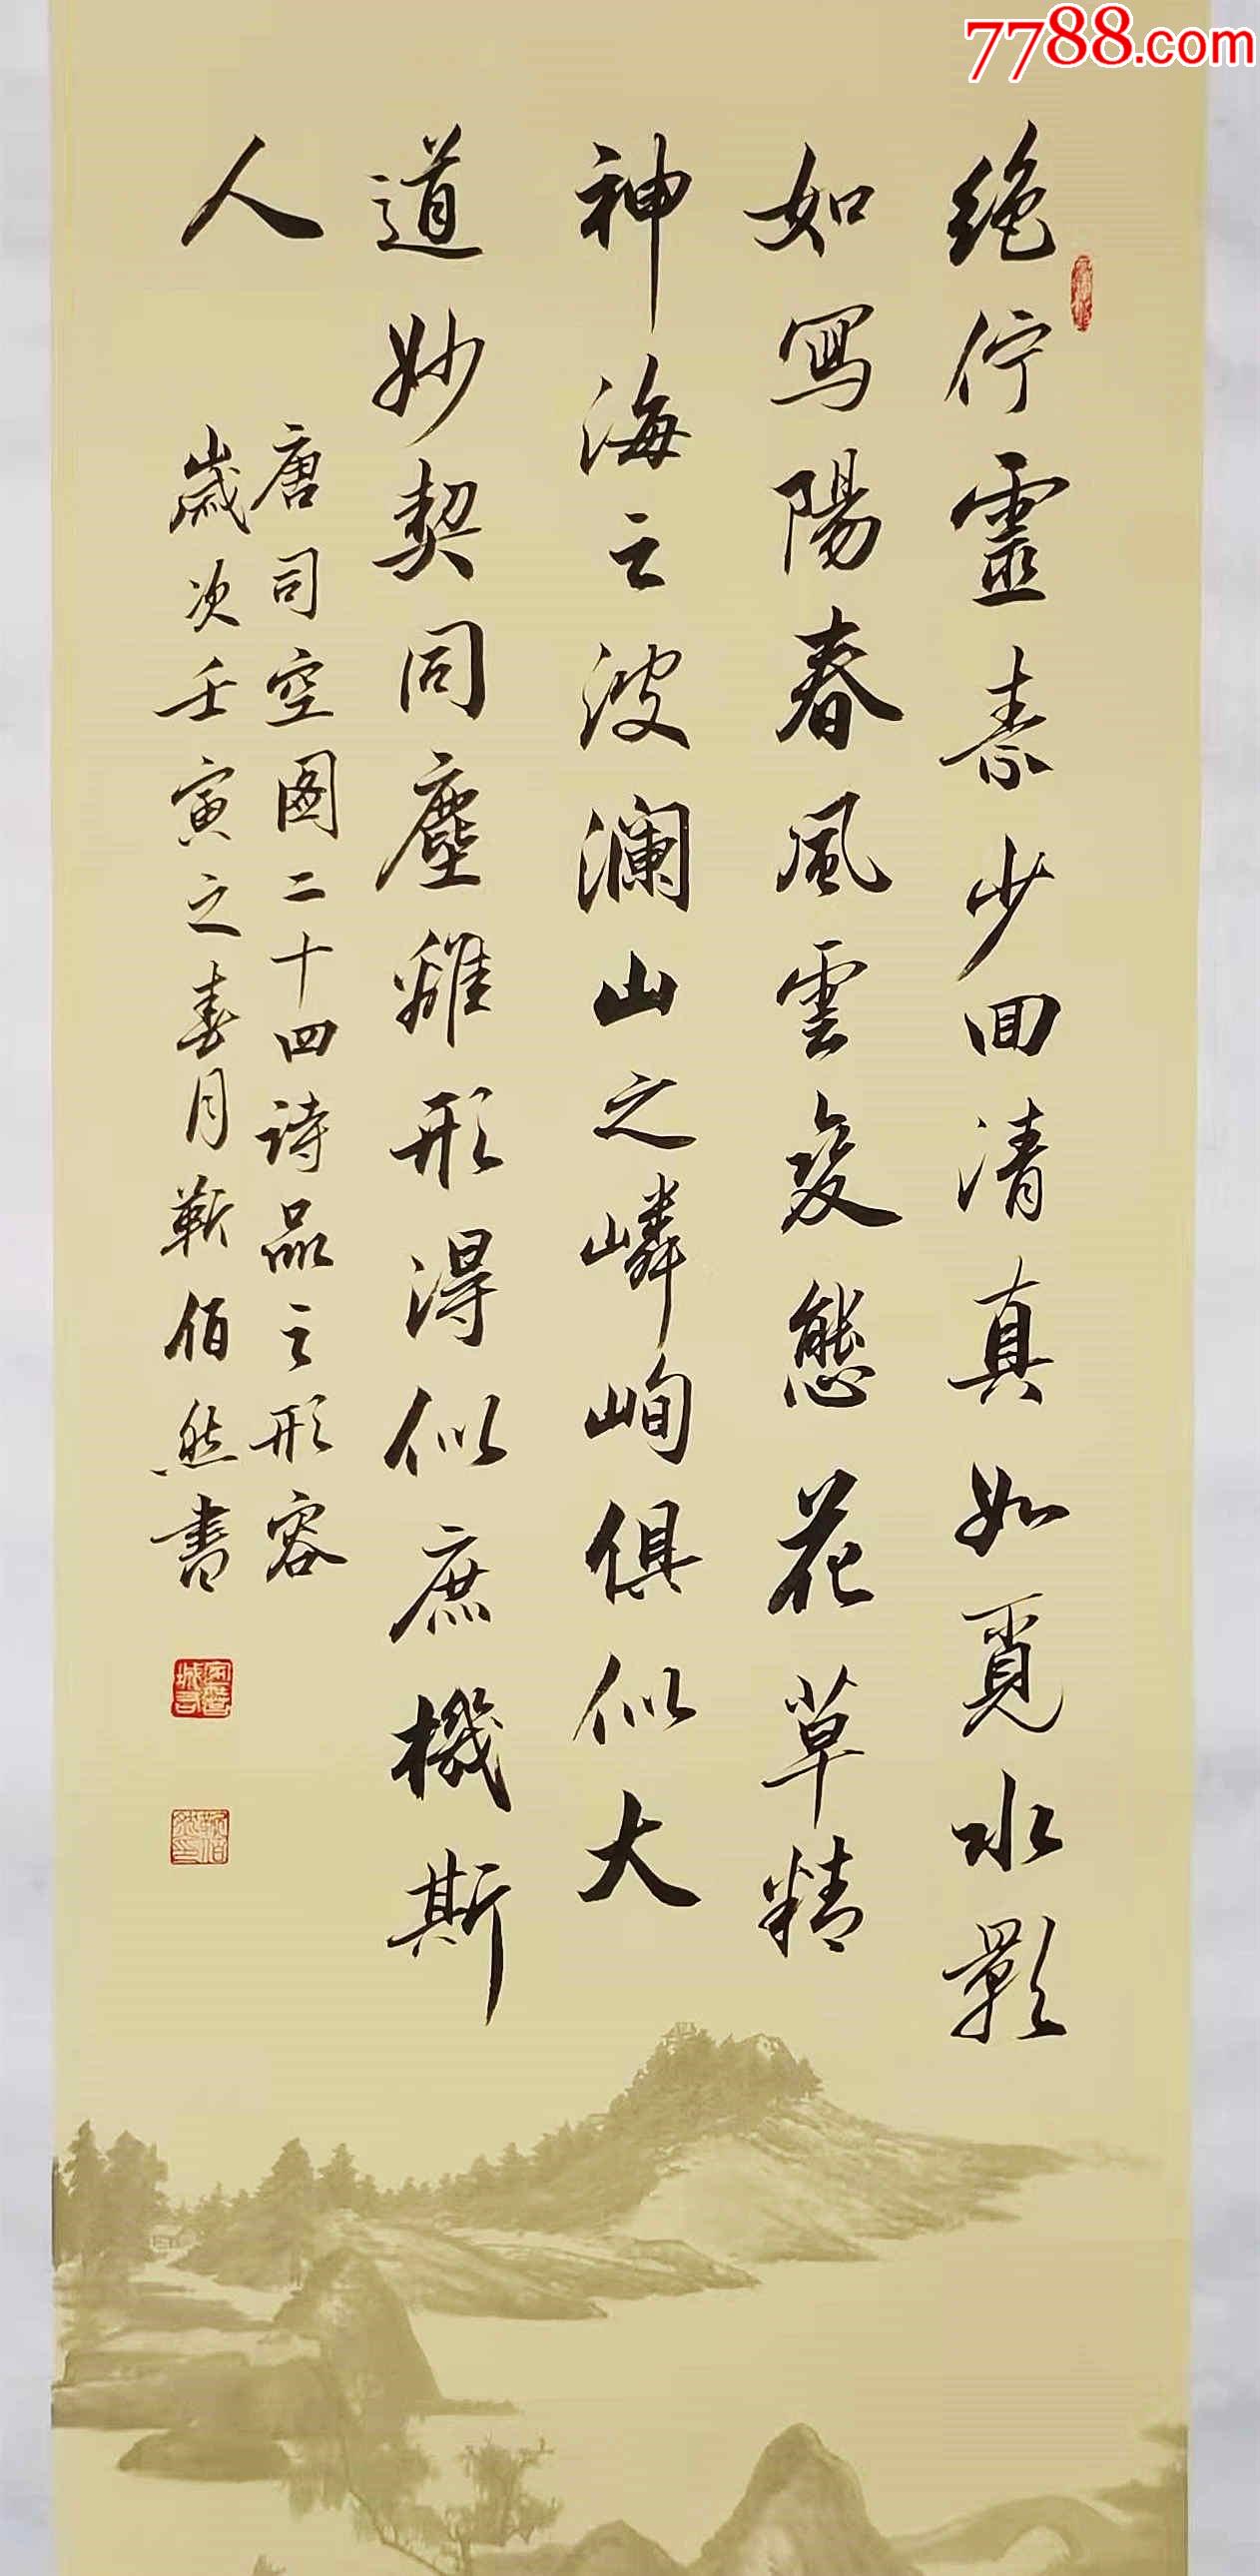 7788.com
絶佇靈素少回清真如覓水影
如寫陽春風雲變態花草精
神海之波瀾山之嶙峋俱似大
道妙契同塵離形得似庶機斯
人
唐司空图二十四诗品之形容
歲次壬寅之春月靳佰然書